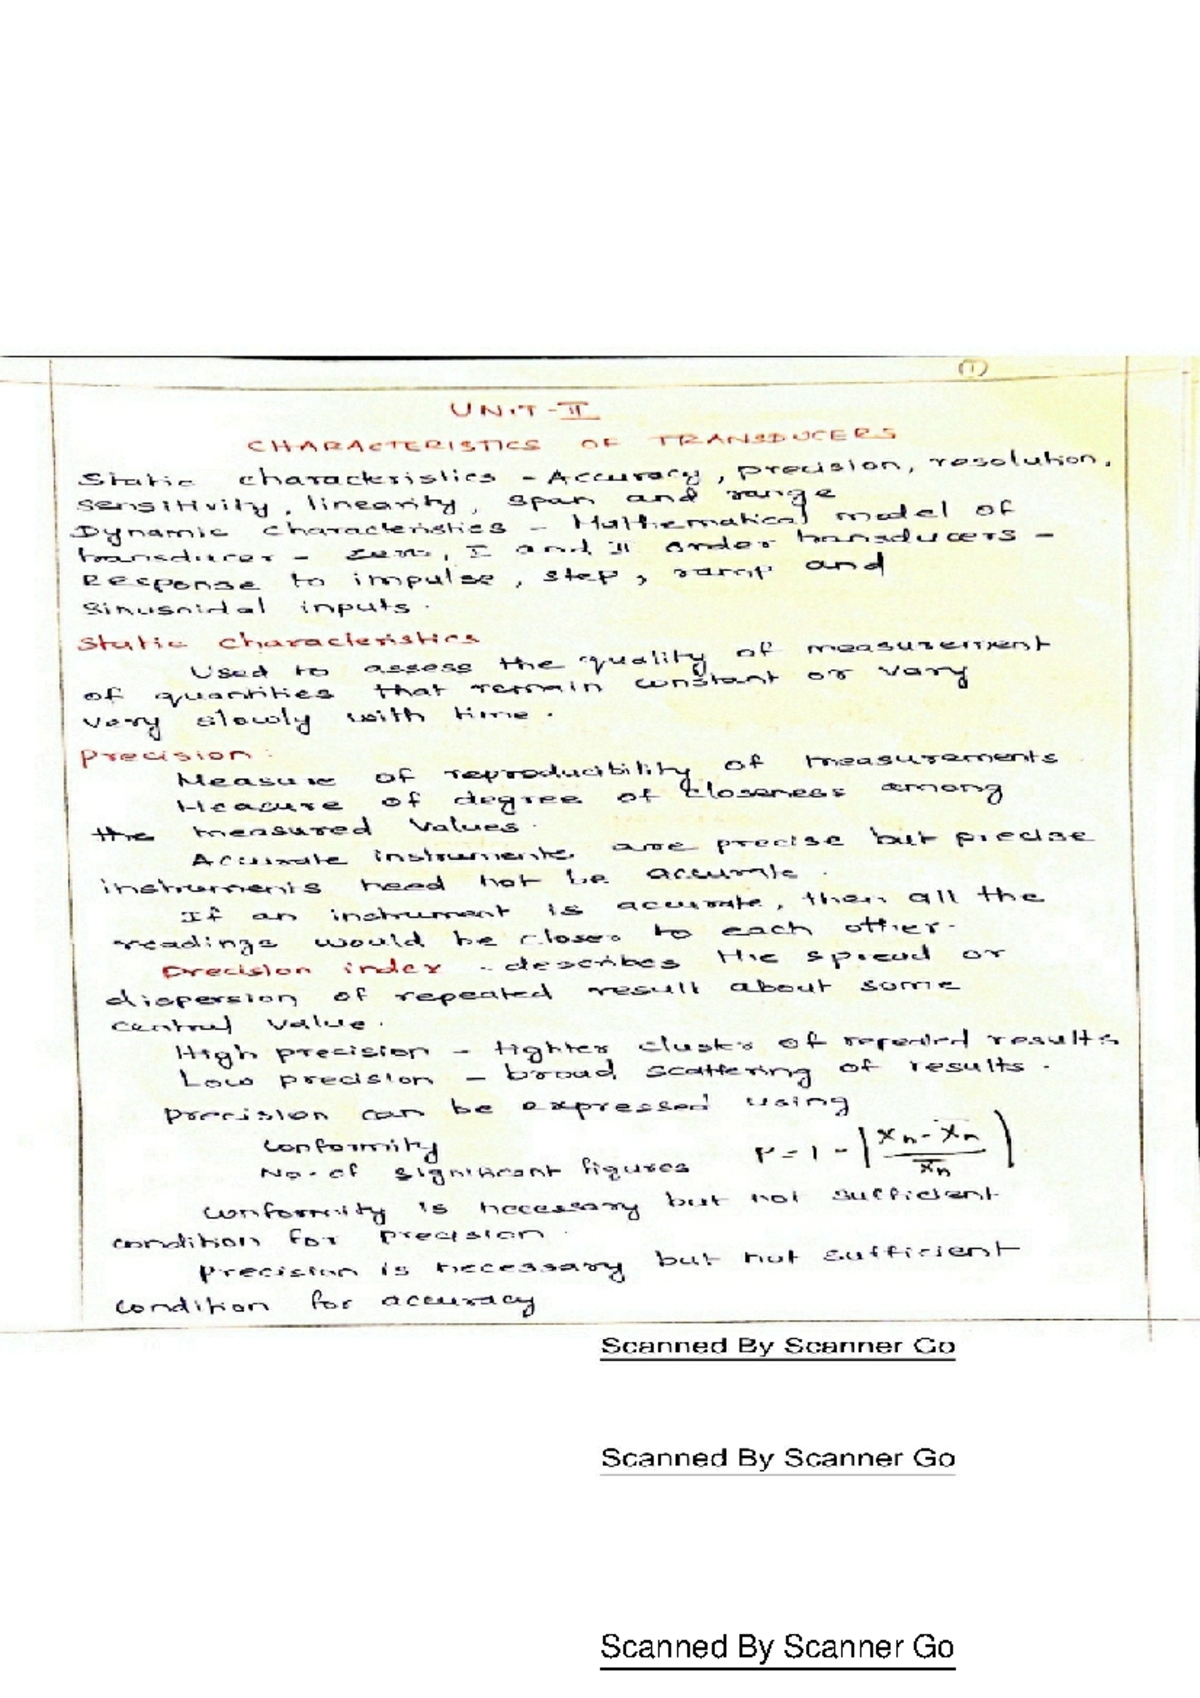 ①
UNIT-II
CHARACTERISTICS OF TRANSDUCERS
Static characteristics - Accuracy, precision, resolution,
sensitivity, linearity, span and range
Dynamic characteristics - Mathematical model of
transducer - zero, I and II order transducers -
Response to impulse, step, ramp and
sinusoidal inputs.
Static characteristics
Used to assess the quality of measurement
of quantities that remain constant or vary
very slowly with time.
Precision:
Measure of reproducibility of measurements
Measure of degree of closeness among
the measured values.
Accurate instruments are precise but precise
instruments need not be accurate.
If an instrument is accurate, then all the
readings would be closer to each other.
Precision index - describes the spread or
dispersion of repeated result about some
central value.
High precision - tighter cluster of repeated results
Low precision - broad scattering of results.
Precision can be expressed using
Conformity
No. of significant figures
P = 1 - |xn - x̄n / x̄n|
Conformity is necessary but not sufficient
condition for precision.
Precision is necessary but not sufficient
condition for accuracy
Scanned By Scanner Go
Scanned By Scanner Go
Scanned By Scanner Go